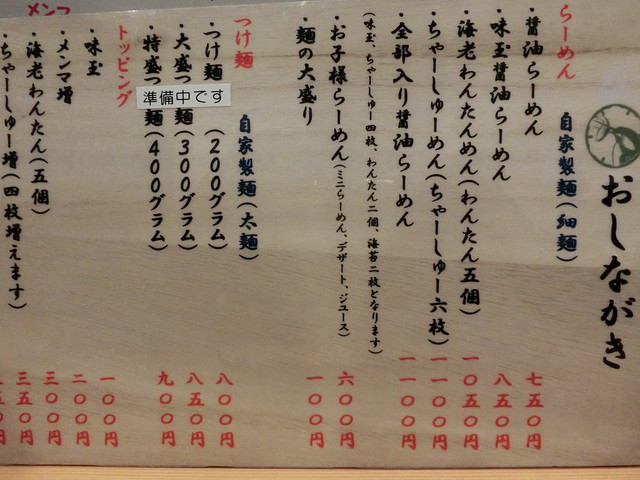 おしながき
らーめん 自家製麺(細麺)
・醤油らーめん 七五〇円
・味玉醤油らーめん 八五〇円
・海老わんたんめん(わんたん五個) 一〇五〇円
・ちゃーしゅーめん(ちゃーしゅー六枚) 一一〇〇円
・全部入り醤油らーめん 一一〇〇円
(味玉、ちゃーしゅー四枚、わんたん二個、海苔二枚となります)
・お子様らーめん(ミニらーめん、デザート、ジュース) 六〇〇円
・麺の大盛り 一〇〇円
つけ麺 自家製麺(太麺)
・つけ麺 (200グラム) 八〇〇円
・大盛つ 麺(300グラム) 八五〇円
・特盛つ 麺(400グラム) 九〇〇円
準備中です
トッピング
・味玉 一〇〇円
・メンマ増
・海老わんたん(五個) 三〇〇円
・ちゃーしゅー増(四枚増えます) 三五〇円